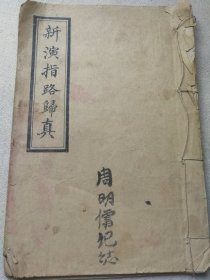 新演指路歸真
周明儒記誌